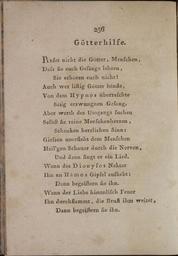 256
Götterhilfe.
Fleht nicht die Götter, Menschen,
Daß sie euch Gesänge lehren,
Sie erhören euch nicht!
Auch wer listig Götter bände,
Von dem Hypnos überraschte
Säng erzwungnen Gesang.
Aber werth des Umgangs suchen
Selbst sie reine Menschenherzen.
Schuckes herzlichen Sinn:
Gießen unversehrt dem Menschen
Heil'gen Schauer durch die Nerven,
Und dann singt er ein Lied.
Wenn des Dionysos Nektar
Ihn an Hämos Gipfel aufhebt:
Dann begeistern sie ihn.
Wenn der Liebe himmlisch Feuer
Ihn durchflammt, die Brust ihm weitet,
Dann begeistern sie ihn.